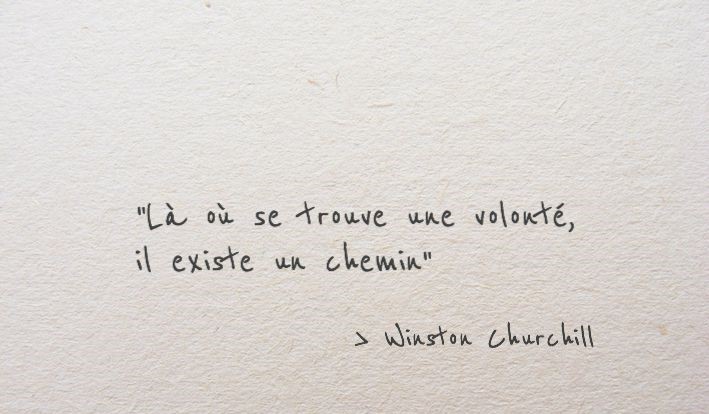 "Là où se trouve une volonté,
il existe un chemin"
> Winston Churchill